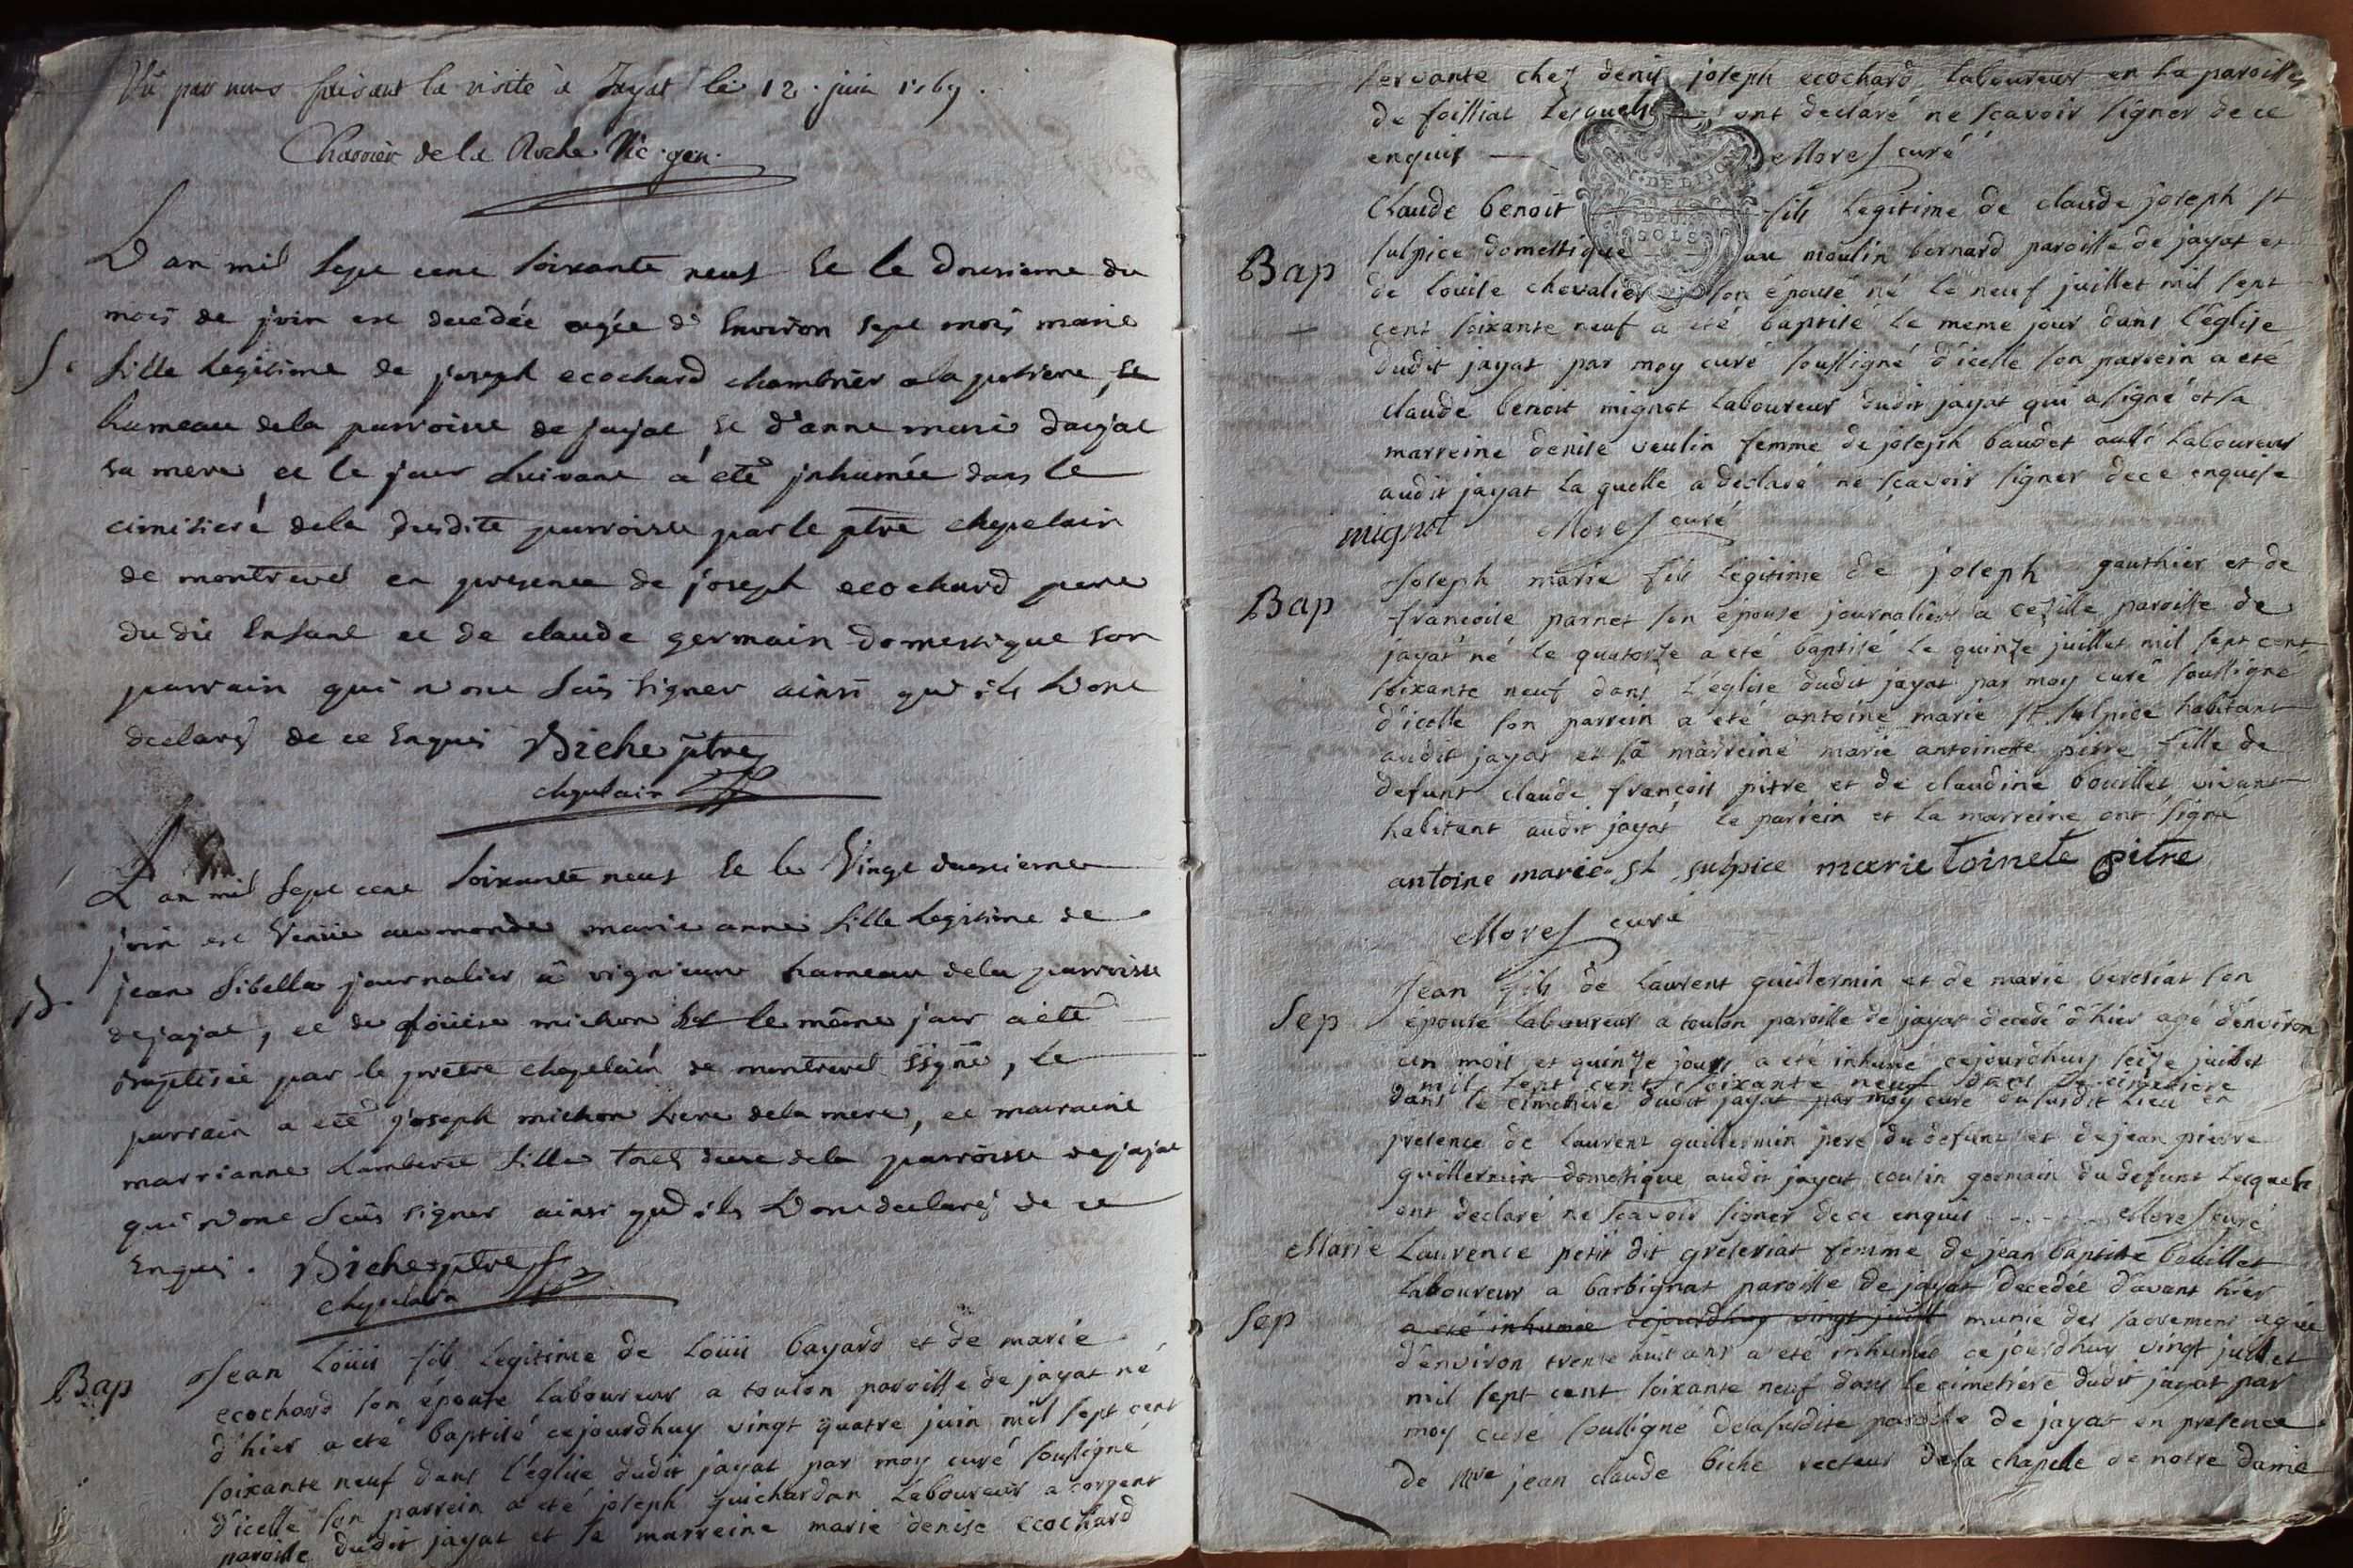 Vû par nous faisant la visite à Jayat le 12. juin 1769.
Charrier de la Roche Vic. gen.
L'an mil sept cent soixante neuf et le douzieme du
mois de juin est decedée agée d'environ sept mois marie
S.
fille legitime de joseph ecochard chambrier a la
hameau de la parroisse de jayat et d'anne marie
sa mere et le jour suivant a été inhumée dans le
cimitiere de la susdite parroisse par le ptre chapelain
de montrevel en presence de joseph ecochard pere
du dit enfant et de claude germain domestique son
parrain qui n'ont sçus signer ainsi qu'ils l'ont
declarés de ce enquis Biche ptre
chapelain
L'an mil sept cent soixante neuf et le vingt deuxieme
juin est venüe au monde marie anne fille legitime de
B.
jean sibella journalier à hameau de la parroisse
de jayat, et de michon et le même jour a été
baptisée par le prêtre chapelain de montrevel ssigné, le
parrain a été joseph michon frere de la mere, et marraine
marrianne fille tous deux de la parroisse de jayat
qui n'ont sçus signer ainsi qu'ils l'ont declarés de ce
enquis. Biche ptre
chapelain
Bap
Jean loüis fils legitime de loüis bayard et de marie
ecochard son épouse laboureur a toulon paroisse de jayat né
d'hier a eté baptisé cejourdhuy vingt quatre juin mil sept cent
soixante neuf dans l'eglise dudit jayat par moy curé soussigné
d'icelle son parrein a eté joseph guichardan laboureur a
paroisse dudit jayat et sa marreine marie denise ecochard
servante chez denis joseph ecochard laboureur en la paroisse
de foissiat lesquels ont declaré ne scavoir signer de ce
enquis Morel curé
DE DIJON
DEUX
SOLS
Claude benoit fils legitime de claude joseph st
Bap
sulpice domestique au moulin bernard paroisse de jayat et
de louise chevalier son épouse né le neuf juillet mil sept
cent soixante neuf a eté baptisé le meme jour dans l'église
dudit jayat par moy curé soussigné d'icelle son parrein a eté
claude benoit mignot laboureur dudit jayat qui a signé et sa
marreine denise veulin femme de joseph baudet aussi laboureur
audit jayat la quelle a declaré ne scavoir signer de ce enquise
mignot Morel curé
Bap
Joseph marie fils legitime de joseph gauthier et de
francoise parnet son épouse journalier a cezille paroisse de
jayat né le quatorze a eté baptisé le quinze juillet mil sept cent
soixante neuf dans l'eglise dudit jayat par moy curé soussigné
d'icelle son parrein a eté antoine marie st sulpice habitant
audit jayat et sa marreine marie antoinette pitre fille de
defunt claude françois pitre et de claudine bouillet vivant
habitant audit jayat le parrein et la marreine ont signé
antoine marie st sulpice marie toinete pitre
Morel curé
Sep
Jean fils de laurent guillermin et de marie bereziat son
épouse laboureur a toulon paroisse de jayat decedé d'hier agé d'environ
un mois et quinze jours a eté inhumé cejourdhuy seize juillet
mil sept cent soixante neuf dans le cimetiere
dans le cimetiere dudit jayat par moy curé du susdit lieu en
presence de laurent guillermin pere du defunt et de jean pierre
guillermin domestique audit jayat cousin germain du defunt lesquels
ont declaré ne scavoir signer de ce enquis Morel curé
Marie Laurence petit dit greleriat femme de jean baptiste bouillet
laboureur a barbignat paroisse de jayat decedée d'avant hier
Sep
a eté inhumée cejourdhuy vingt juill munie des sacremens agée
d'environ trente huit ans a eté inhumée cejourdhuy vingt juillet
mil sept cent soixante neuf dans le cimetiére dudit jayat par
moy curé soussigné de la susdite paroisse de jayat en presence
de Mre jean claude biche recteur de la chapelle de notre dame